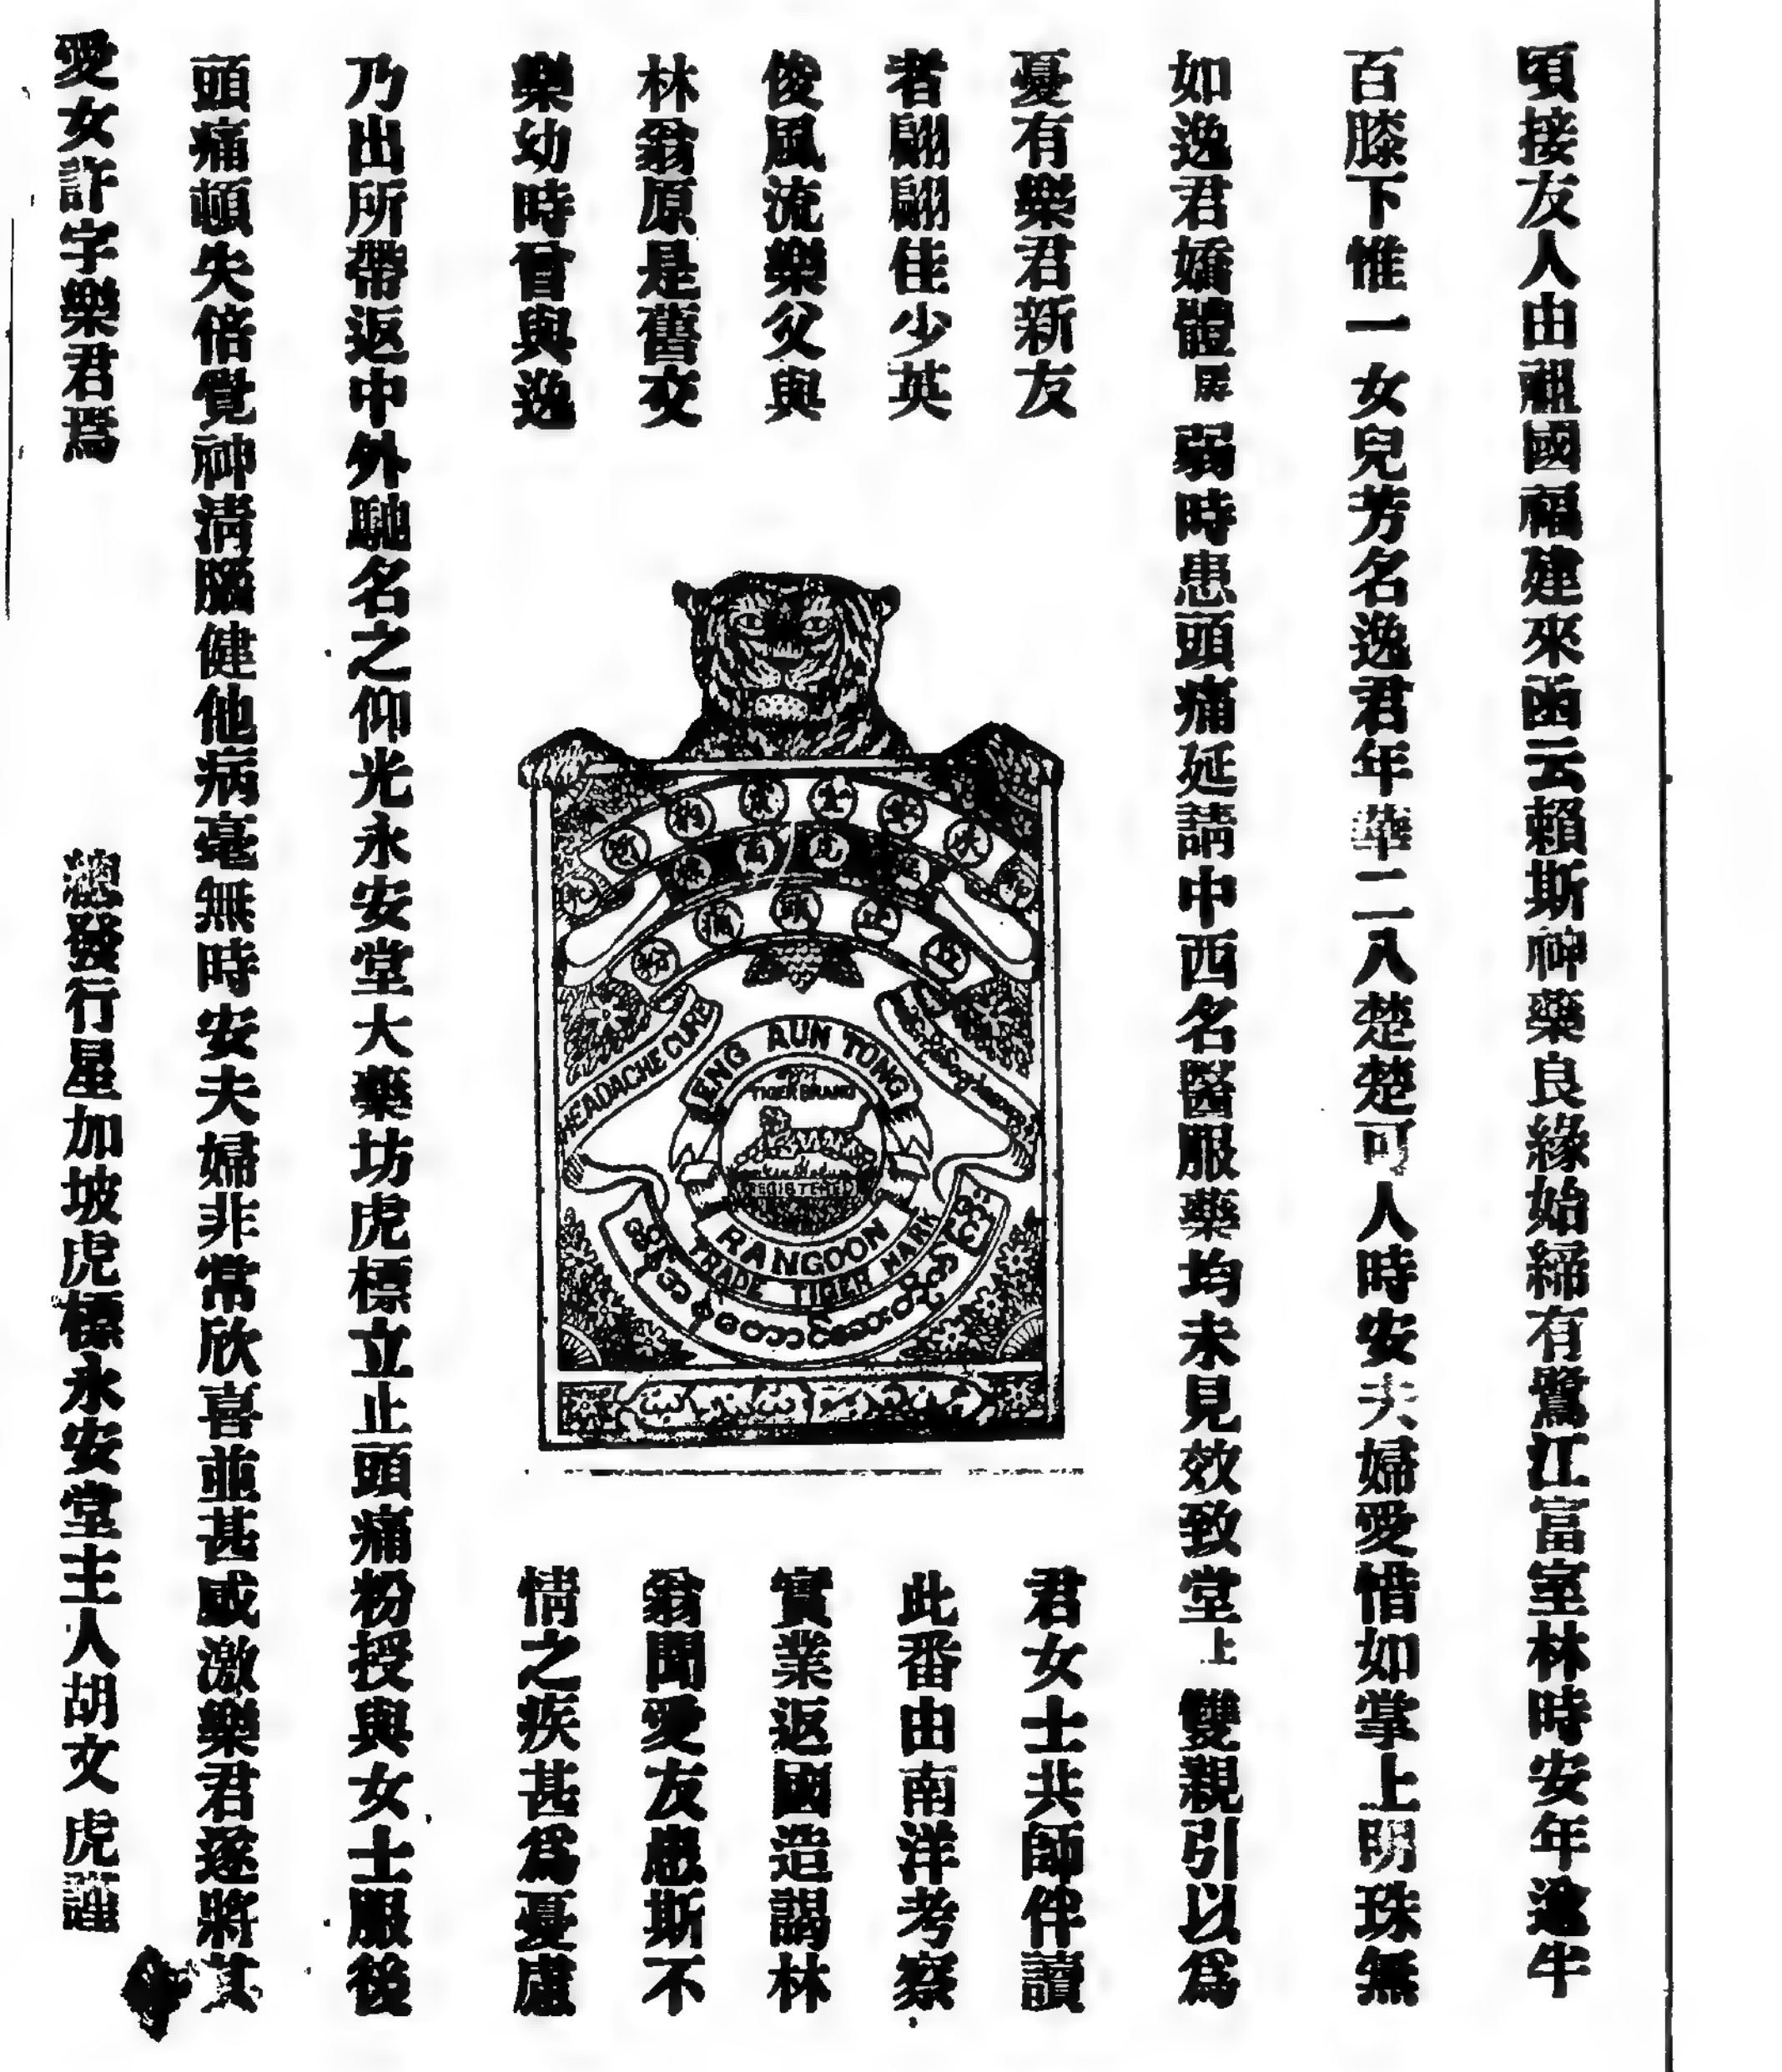 頃接友人由祖國福建來函云賴斯神藥良緣始締有鷺江富室林時安年逾半
百膝下惟一女兒芳名逸君年華二八楚楚可人時安夫婦愛惜如掌上明珠無
如逸君嬌體孱弱時患頭痛延請中西名醫服藥均未見效致堂上雙親引以爲
憂有樂君新友
者翩翩佳少英
俊風流樂父與
林翁原是舊交
樂幼時曾與逸
君女士共師伴讀
此番由南洋考察
實業返國造謁林
翁聞愛友患斯不
情之疾甚爲憂慮
乃出所帶返中外馳名之仰光永安堂大藥坊虎標立止頭痛粉授與女士服後
頭痛頓失倍覺神清腦健他病毫無時安夫婦非常欣喜並甚感激樂君遂將其
愛女許字樂君爲
總發行星加坡虎標永安堂主人胡文虎謹
立止頭痛粉
HEADACHE CURE
ENG AUN TONG
TIGER BRAND
REGISTERED
RANGOON
TRADE TIGER MARK